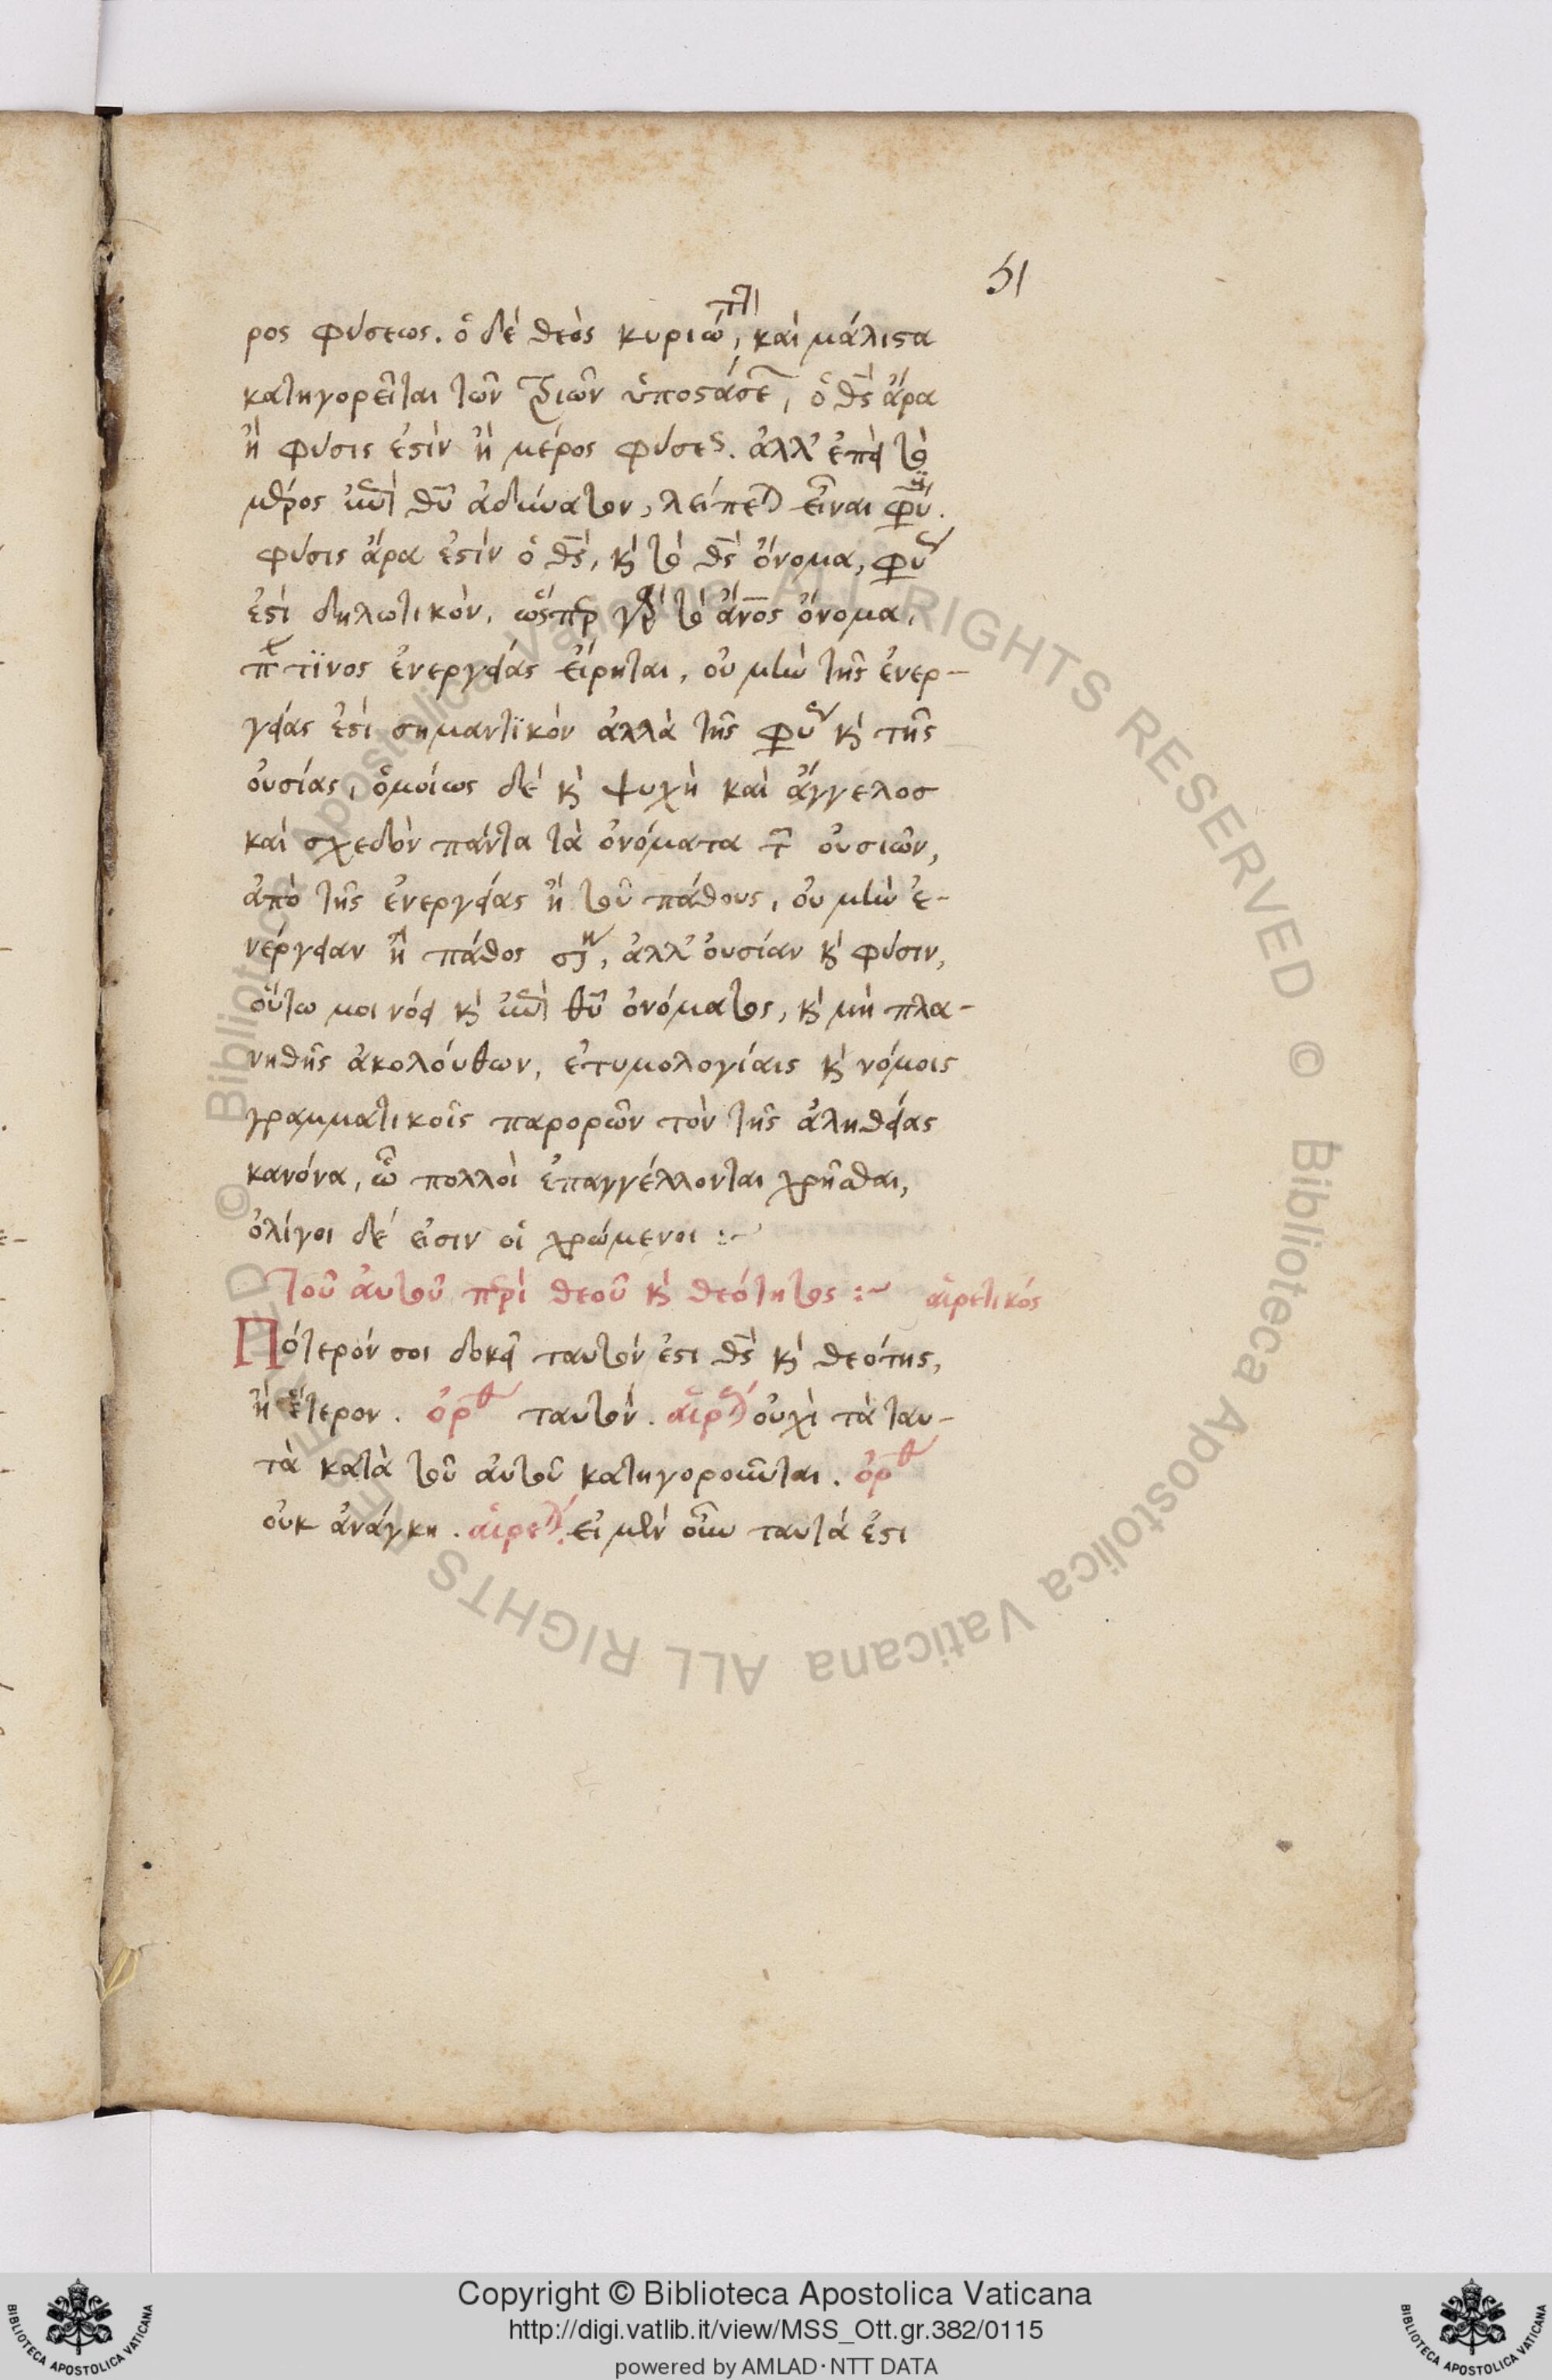 51
ρος φύσεως. ὁ δὲ θεὸς κυριώτ, καὶ μάλιστα
κατηγορεῖται τῶν τριῶν ὑποστάσε, ὁ θς ἄρα
ἢ φύσις ἐστὶν ἢ μέρος φύσεως. ἀλλ' ἐπεὶ τὸ
μέρος ἐπὶ θυ ἀδύνατον, λείπεται εἶναι φύ.
φύσις ἄρα ἐστὶν ὁ θς, κὶ τὸ θς ὄνομα, φύ
ἐστὶ δηλωτικόν, ὥσπερ γὰρ τὸ ἄνος ὄνομα,
τινος ἐνεργείας εἴρηται, οὐ μὴν τῆς ἐνερ-
γείας ἐστὶ σημαντϊκὸν ἀλλὰ τῆς φύ κὶ τῆς
οὐσίας, ὁμοίως δὲ κὶ ψυχὴ καὶ ἄγγελος
καὶ σχεδὸν πάντα τὰ ὀνόματα τ οὐσιῶν,
ἀπὸ τῆς ἐνεργείας ἢ τοῦ πάθους, οὐ μὴν ἐ-
νέργειαν ἢ πάθος ση, ἀλλ' οὐσίαν κὶ φύσιν,
οὕτω μοι νόει κὶ ἐπὶ θυ ὀνόματος, κὶ μὴ πλα-
νηθῆς ἀκολούθων, ἐτυμολογίαις κὶ νόμοις
γραμματικοῖς παρορῶν τὸν τῆς ἀληθείας
κανόνα, ᾧ πολλοὶ ἐπαγγέλλονται χρῆσθαι,
ὀλίγοι δέ εἰσιν οἱ χρώμενοι :~
Τοῦ αὐτοῦ περὶ θεοῦ κὶ θεότητος :~ αἱρετικός
Πότερόν σοι δοκεῖ ταυτόν ἐστι θς κὶ θεότης,
ἢ ἕτερον. ὀρθ ταυτόν. αἱρετ οὐχὶ τὰ ταυ-
τὰ κατὰ τοῦ αὐτοῦ κατηγοροῦνται. ὀρθ
οὐκ ἀνάγκη. αἱρετ. εἰ μὲν οὖν ταυτά ἐστι
Copyright © Biblioteca Apostolica Vaticana
http://digi.vatlib.it/view/MSS_Ott.gr.382/0115
powered by AMLAD·NTT DATA